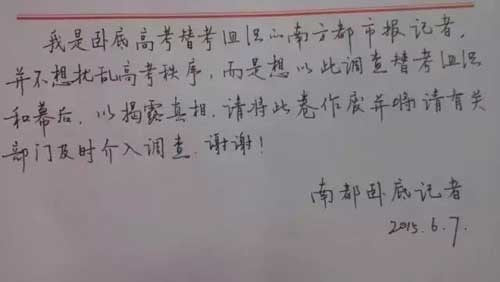 我是卧底高考替考组织的南方都市报记者，
并不想扰乱高考秩序，而是想以此调查替考组织
和幕后，以揭露真相．请将此卷作废并将请有关
部门及时介入调查．谢谢！
南都卧底记者
2015.6.7.